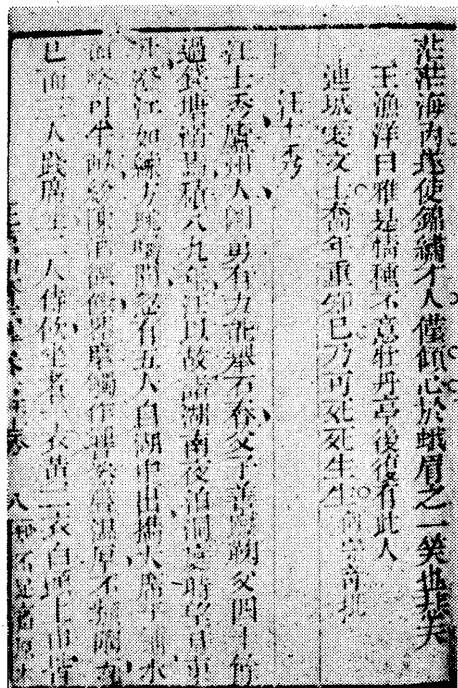 茫茫海內遂使錦繡才人僅傾心於蛾眉之一笑也悲夫
王漁洋曰雅是情種不意牡丹亭後復有此人
連城 文士喬年重 已乃可死死生生 何守奇批
汪士秀
汪士秀廬州人剛勇有力能舉石舂父子善蹴鞠父四十餘
過錢塘溺焉積八九年汪以故詣湖南夜泊洞庭時望月東
升澄江如練方眺矚間忽有五人自湖中出攜大席平鋪水
面略可半畝紛陳酒饌饌器磨觸作響然聲溫厚不類陶瓦
已而三人踐席坐二人侍飲坐者一衣黃二衣白頭上巾皆